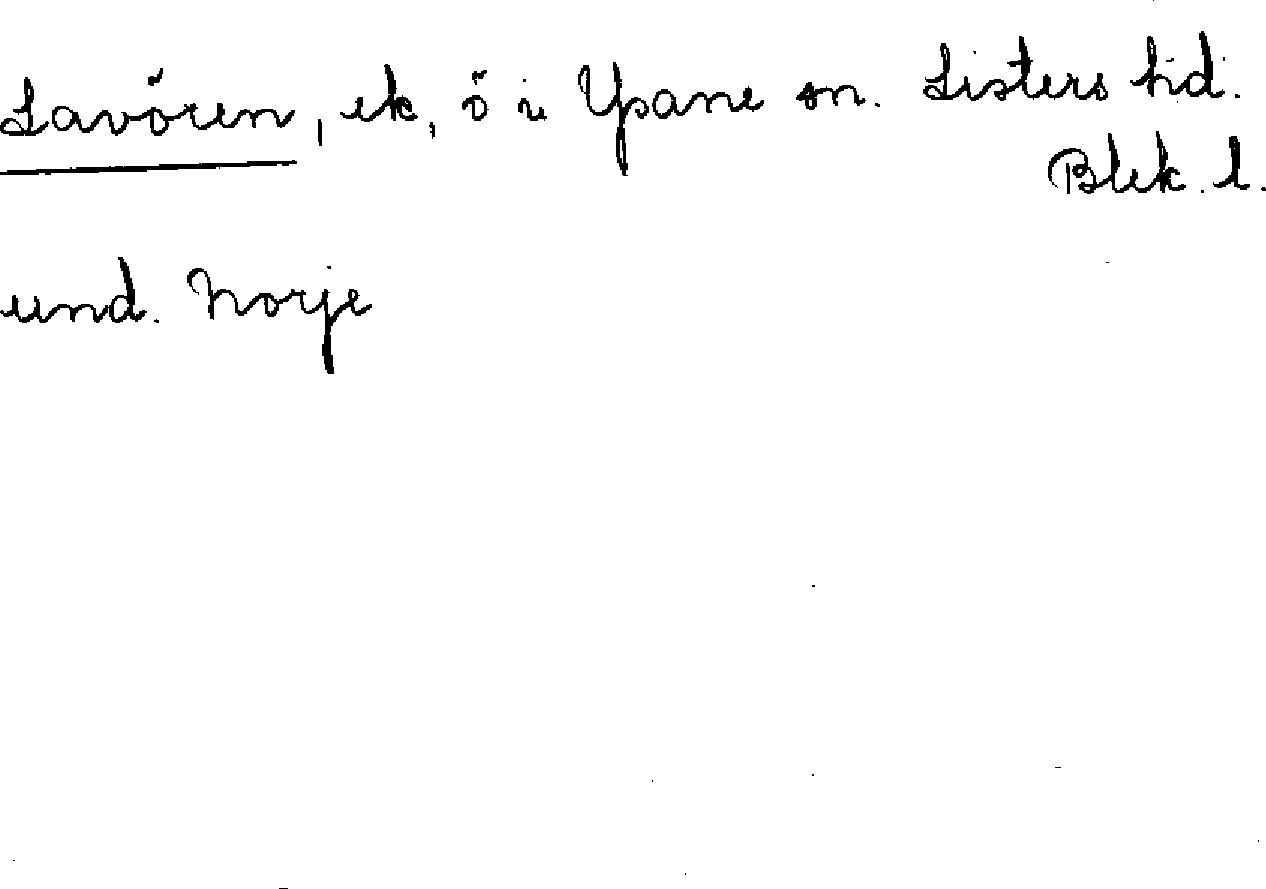 Lavören, ek, ö i Ysane sn. Listers hd.
Blek. l.
und. Norje